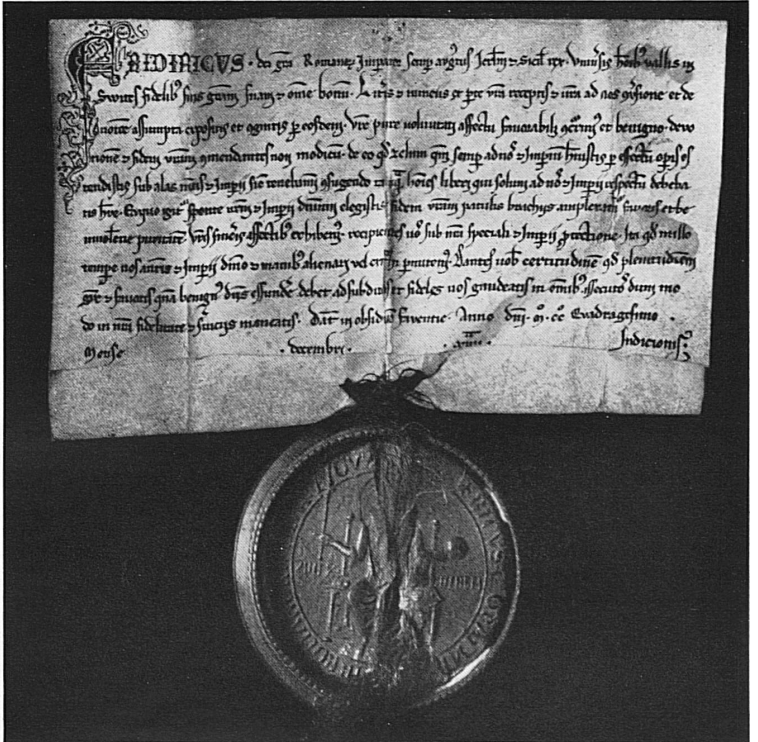 FRIDERICVS · dei gra Romanor Imparor semp augustus Jerlm & Sicil rex. Vniuersis hoib vallis in
Swites fidelib suis gram suam & omne bonum. Litris & nuntiis ex parte vra receptis & vra ad nos conuersione et de
uotione assumpta expositis et cognitis p eosdem. Vre pure voluntati affectu fauorabili concurrim et benigno. deuo
tionem & fidem vram comendantes non modicum. de eo qd zelum quem semp ad nos & Imperium habuistis p effectum opis os
tendistis sub alas nras & Imperii sicut tenebamini confugiendo tamq homines liberi qui solum ad nos & Imperium respectum debeba
tis habere. Ex quo igitur sponte nrm & Imperii dominium elegistis fidem vram patulis brachiis amplexamur. fauoris et be
niuolentie puritatem vris sinceris affectib exhibemus. recipientes uos sub nra speciali & Imperii protectione. Ita qd nullo
tempore uos a nris & Imperii dominio & manib alienari vel extrahi permittemus. Dantes uob certitudinem qd plenitudinem
gratie & fauoris quam benignus dns effundere debet ad subditos et fideles uos gaudeatis in omnib assecutos dum mo
do in nra fidelitate & seruiciis maneatis. Dat in obsidione Fauentie. Anno Dni. M. CC Quadragesimo.
Mense · decembri · · xiiii · Indictionis